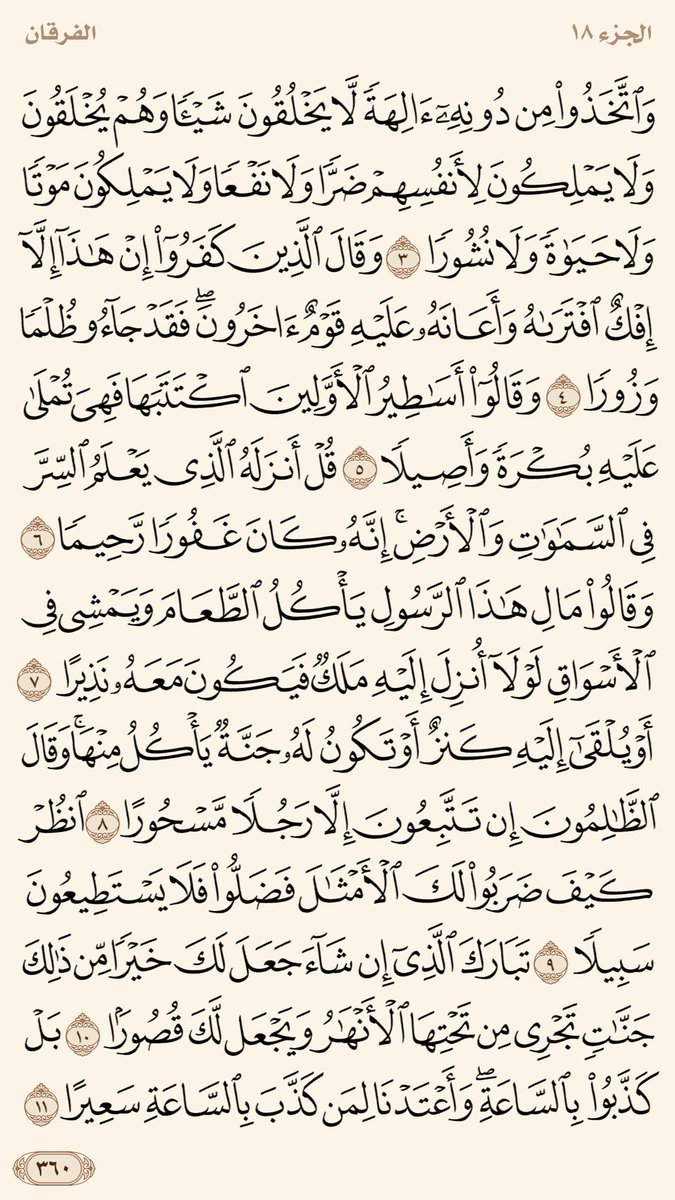 الجزء ١٨
الفرقان
وَٱتَّخَذُواْ مِن دُونِهِۦٓ ءَالِهَةٗ لَّا يَخۡلُقُونَ شَيۡـٔٗا وَهُمۡ يُخۡلَقُونَ
وَلَا يَمۡلِكُونَ لِأَنفُسِهِمۡ ضَرّٗا وَلَا نَفۡعٗا وَلَا يَمۡلِكُونَ مَوۡتٗا
وَلَا حَيَوٰةٗ وَلَا نُشُورٗا ٣ وَقَالَ ٱلَّذِينَ كَفَرُوٓاْ إِنۡ هَٰذَآ إِلَّآ
إِفۡكٌ ٱفۡتَرَىٰهُ وَأَعَانَهُۥ عَلَيۡهِ قَوۡمٌ ءَاخَرُونَۖ فَقَدۡ جَآءُو ظُلۡمٗا
وَزُورٗا ٤ وَقَالُوٓاْ أَسَٰطِيرُ ٱلۡأَوَّلِينَ ٱكۡتَتَبَهَا فَهِيَ تُمۡلَىٰ
عَلَيۡهِ بُكۡرَةٗ وَأَصِيلٗا ٥ قُلۡ أَنزَلَهُ ٱلَّذِي يَعۡلَمُ ٱلسِّرَّ
فِي ٱلسَّمَٰوَٰتِ وَٱلۡأَرۡضِۚ إِنَّهُۥ كَانَ غَفُورٗا رَّحِيمٗا ٦
وَقَالُواْ مَالِ هَٰذَا ٱلرَّسُولِ يَأۡكُلُ ٱلطَّعَامَ وَيَمۡشِي فِي
ٱلۡأَسۡوَاقِ لَوۡلَآ أُنزِلَ إِلَيۡهِ مَلَكٞ فَيَكُونَ مَعَهُۥ نَذِيرًا ٧
أَوۡ يُلۡقَىٰٓ إِلَيۡهِ كَنزٌ أَوۡ تَكُونُ لَهُۥ جَنَّةٞ يَأۡكُلُ مِنۡهَاۚ وَقَالَ
ٱلظَّٰلِمُونَ إِن تَتَّبِعُونَ إِلَّا رَجُلٗا مَّسۡحُورًا ٨ ٱنظُرۡ
كَيۡفَ ضَرَبُواْ لَكَ ٱلۡأَمۡثَٰلَ فَضَلُّواْ فَلَا يَسۡتَطِيعُونَ
سَبِيلٗا ٩ تَبَارَكَ ٱلَّذِيٓ إِن شَآءَ جَعَلَ لَكَ خَيۡرٗا مِّن ذَٰلِكَ
جَنَّٰتٖ تَجۡرِي مِن تَحۡتِهَا ٱلۡأَنۡهَٰرُ وَيَجۡعَل لَّكَ قُصُورَۢا ١٠ بَلۡ
كَذَّبُواْ بِٱلسَّاعَةِۖ وَأَعۡتَدۡنَا لِمَن كَذَّبَ بِٱلسَّاعَةِ سَعِيرًا ١١
٣٦٠